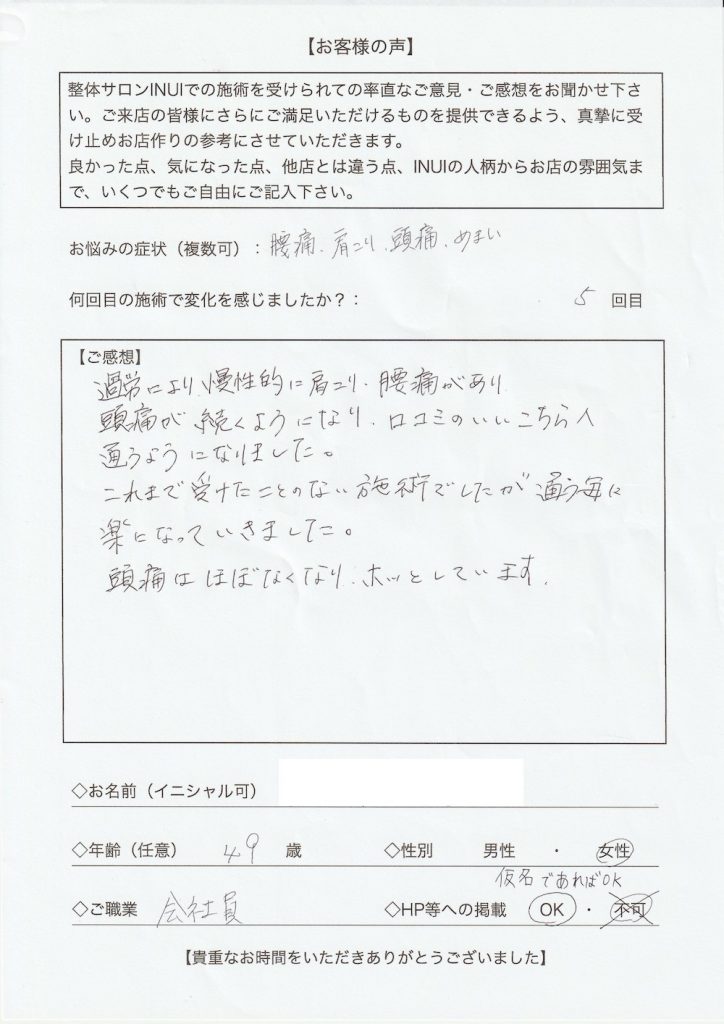 【お客様の声】
整体サロンINUIでの施術を受けられての率直なご意見・ご感想をお聞かせ下さ
い。ご来店の皆様にさらにご満足いただけるものを提供できるよう、真摯に受
け止めお店作りの参考にさせていただきます。
良かった点、気になった点、他店とは違う点、INUIの人柄からお店の雰囲気ま
で、いくつでもご自由にご記入下さい。
お悩みの症状（複数可）：腰痛、肩こり、頭痛、めまい
何回目の施術で変化を感じましたか？： 5 回目
【ご感想】
過労により、慢性的に肩こり、腰痛があり
頭痛が続くようになり、口コミのいいこちらへ
通うようになりました。
これまで受けたことのない施術でしたが通う毎に
楽になっていきました。
頭痛はほぼなくなり、ホッとしています。
◇お名前（イニシャル可）
◇年齢（任意） 49 歳 ◇性別 男性 ・ 女性
仮名であればOK
◇ご職業 会社員 ◇HP等への掲載 OK ・ 不可
【貴重なお時間をいただきありがとうございました】